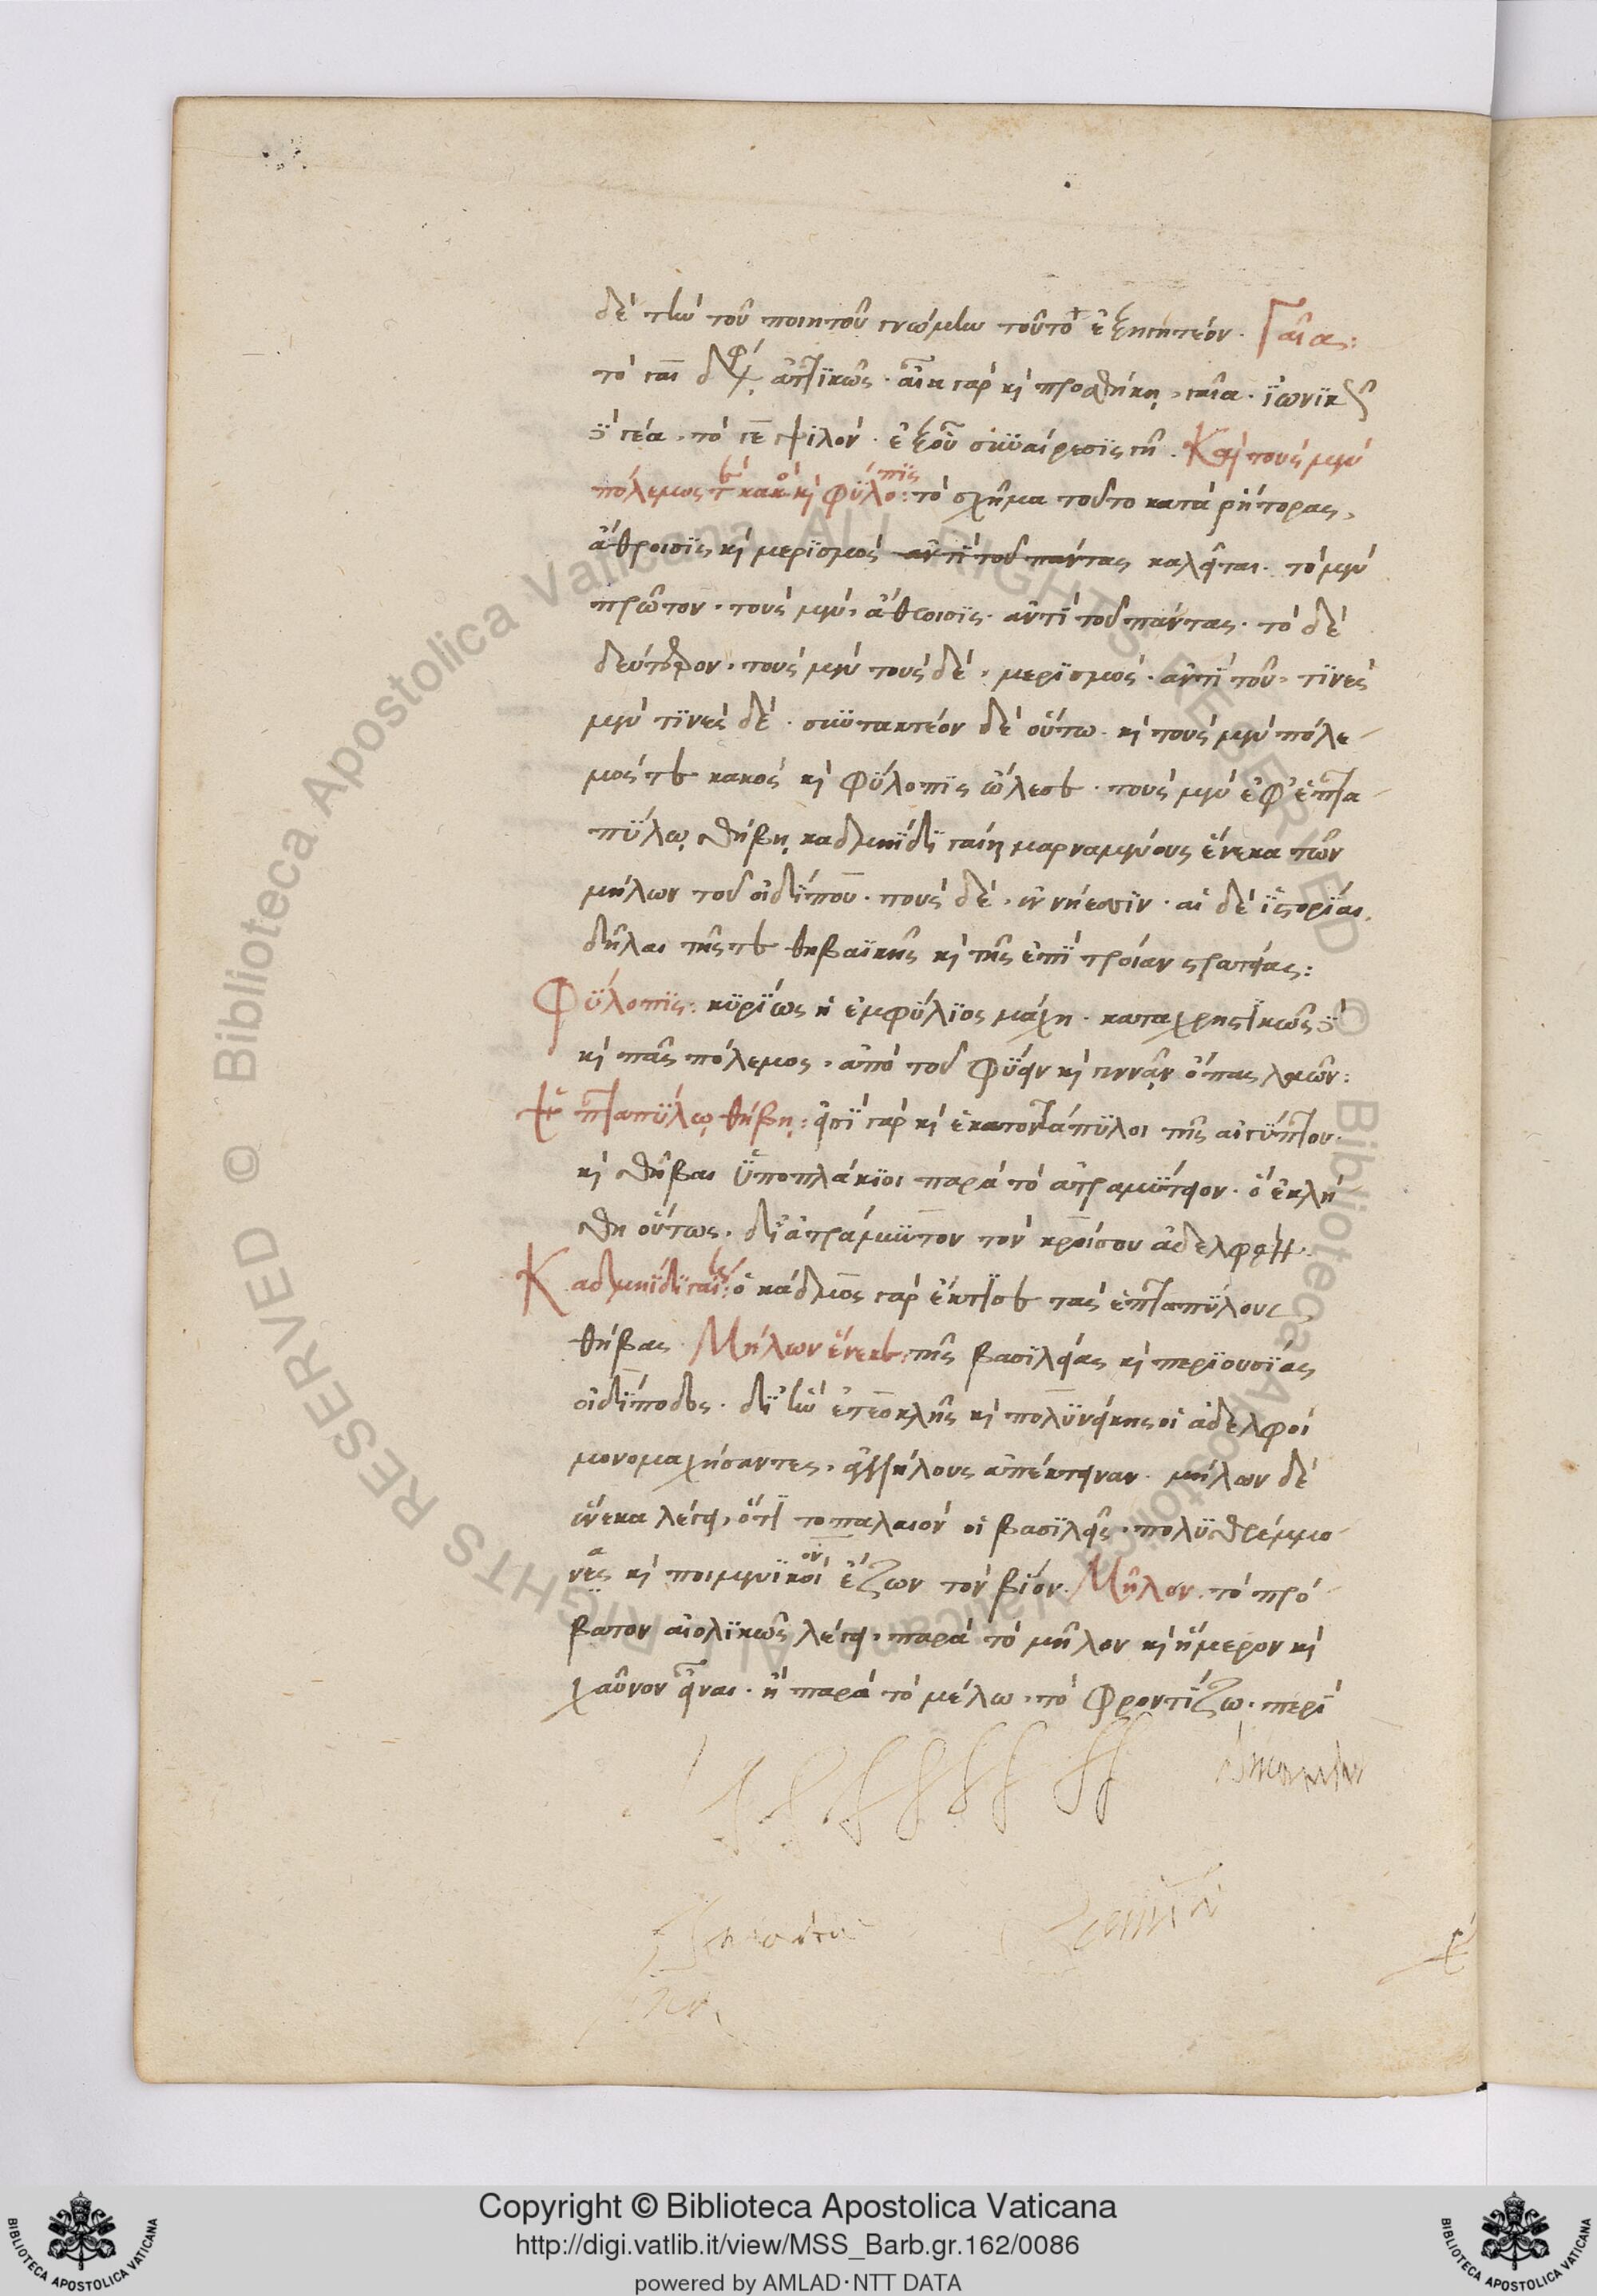 δὲ τὴν τοῦ ποιητοῦ γνώμην τοῦτο ἐξηγητέον. Γαῖα:
τὸ γαι δίφθογγος ἀττικῶς. αἶα γὰρ καὶ προσθήκη, γαῖα. ἰωνικῶς
δὲ γέα, τὸ γε ψιλόν. ἐξ οὗ συναίρεσις γῆ. Καὶ τοὺς μὲν
πόλεμος τε κακὸς καὶ φύλοπις: τὸ σχῆμα τοῦτο κατὰ ῥήτορας,
ἄθροισις καὶ μερισμὸς ἀντὶ τοῦ πάντας καλεῖται. τὸ μὲν
πρῶτον, τοὺς μὲν, ἄθροισις. ἀντὶ τοῦ πάντας. τὸ δὲ
δεύτερον, τοὺς μὲν τοὺς δὲ, μερισμὸς. ἀντὶ τοῦ, τινὲς
μὲν τινὲς δὲ. συντακτέον δὲ οὕτω. καὶ τοὺς μὲν πόλε-
μός τε κακὸς καὶ φύλοπις ὤλεσε. τοὺς μὲν ἐφ' ἑπτα-
πύλῳ θήβῃ καδμηΐδι γαίῃ μαρναμένους ἕνεκα τῶν
μήλων τοῦ οἰδίπου. τοὺς δὲ, ἐν νήεσσιν. αἱ δὲ ἱστορίαι,
δῆλαι τῆς τε θηβαϊκῆς καὶ τῆς ἐπὶ τροίαν στρατείας:
Φύλοπις: κυρίως ἡ ἐμφύλιος μάχη. καταχρηστικῶς δὲ
καὶ πᾶς πόλεμος, ἀπὸ τοῦ φύειν καὶ γεννᾶν ὄπας λαῶν:
Ἑπταπύλῳ θήβῃ: εἰσὶ γὰρ καὶ ἑκατοντάπυλοι τῆς αἰγύπτου.
καὶ θῆβαι ὑποπλάκιοι παρὰ τὸ ἀτραμύτειον. ὃ ἐκλή-
θη οὕτως, δι' ἀτράμυτον τὸν κροίσου ἀδελφόν.
Καδμηΐδι γαίῃ: ὁ κάδμος γὰρ ἔκτισε τὰς ἑπταπύλους
θήβας. Μήλων ἕνεκα: τῆς βασιλείας καὶ περιουσίας
οἰδίποδος. δι' ἣν ἐτεοκλῆς καὶ πολυνείκης οἱ ἀδελφοὶ
μονομαχήσαντες, ἀλλήλους ἀπέκτειναν. μήλων δὲ
ἕνεκα λέγει, ὅτι τοπαλαιὸν οἱ βασιλεῖς, πολυθρέμμο-
νες καὶ ποιμενικὸν ἔζων τὸν βίον. Μῆλον. τὸ πρό-
βατον αἰολικῶς λέγει, παρὰ τὸ μῆλον καὶ ἥμερον καὶ
χαῦνον εἶναι. ἢ παρὰ τὸ μέλω, τὸ φροντίζω. περὶ
© Biblioteca Apostolica Vaticana ALL RIGHTS RESERVED
© Biblioteca Apostolica Vaticana ALL RIGHTS RESERVED
Copyright © Biblioteca Apostolica Vaticana
http://digi.vatlib.it/view/MSS_Barb.gr.162/0086
powered by AMLAD·NTT DATA
BIBLIOTECA APOSTOLICA VATICANA
BIBLIOTECA APOSTOLICA VATICANA